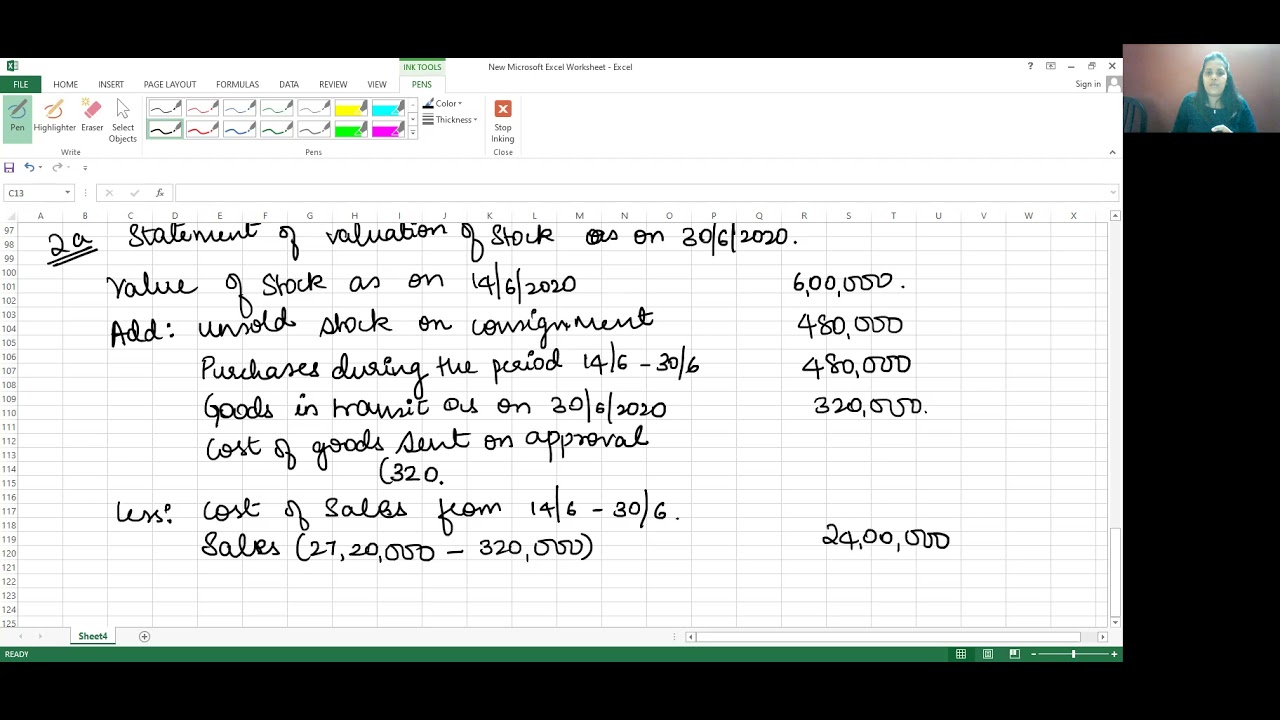 INK TOOLS
New Microsoft Excel Worksheet - Excel
?
Sign in
FILE HOME INSERT PAGE LAYOUT FORMULAS DATA REVIEW VIEW PENS
Pen Highlighter Eraser Select Objects
Color
Thickness
Stop Inking
Write Pens Close
C13 fx
A B C D E F G H I J K L M N O P Q R S T U V W X
97
98
99
100
101
102
103
104
105
106
107
108
109
110
111
112
113
114
115
116
117
118
119
120
121
122
123
124
125
2a Statement of valuation of Stock as on 30/6/2020.
Value of Stock as on 14/6/2020 6,00,000.
Add: unsold stock on consignment 480,000
Purchases during the period 14/6 - 30/6 480,000
Goods in transit as on 30/6/2020 320,000.
Cost of goods sent on approval
(320.
Less: Cost of Sales from 14/6 - 30/6.
Sales (27,20,000 - 320,000) 24,00,000
Sheet4
READY